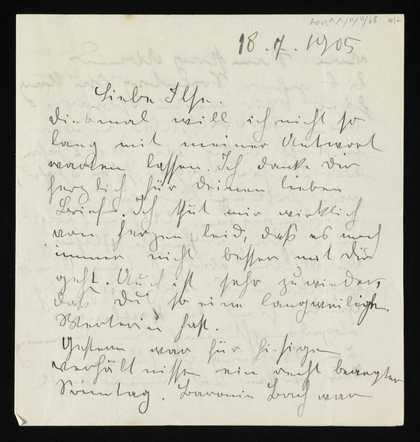 18.7.1905
Liebe Ilse.
diesmal will ich nicht so
lang mit meiner Antwort
warten lassen. Ich danke dir
herzlich für deinen lieben
Brief. Es thut mir wirklich
von Herzen leid, daß es noch
immer nicht besser mit dir
geht. Auch ist sehr zuwider,
daß Du so eine langweilige
Wärterin hast.
Gestern war für hiesige
Verhältnisse ein recht bewegter
Sonntag. Baronin Bach war